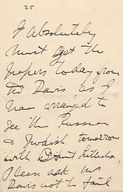 25
I Absolutely
must get the
papers today from
Mr Davis as I
have arranged to
see the Russian
& Swedish tomorrow
with
Please ask Mr
Davis not to fail